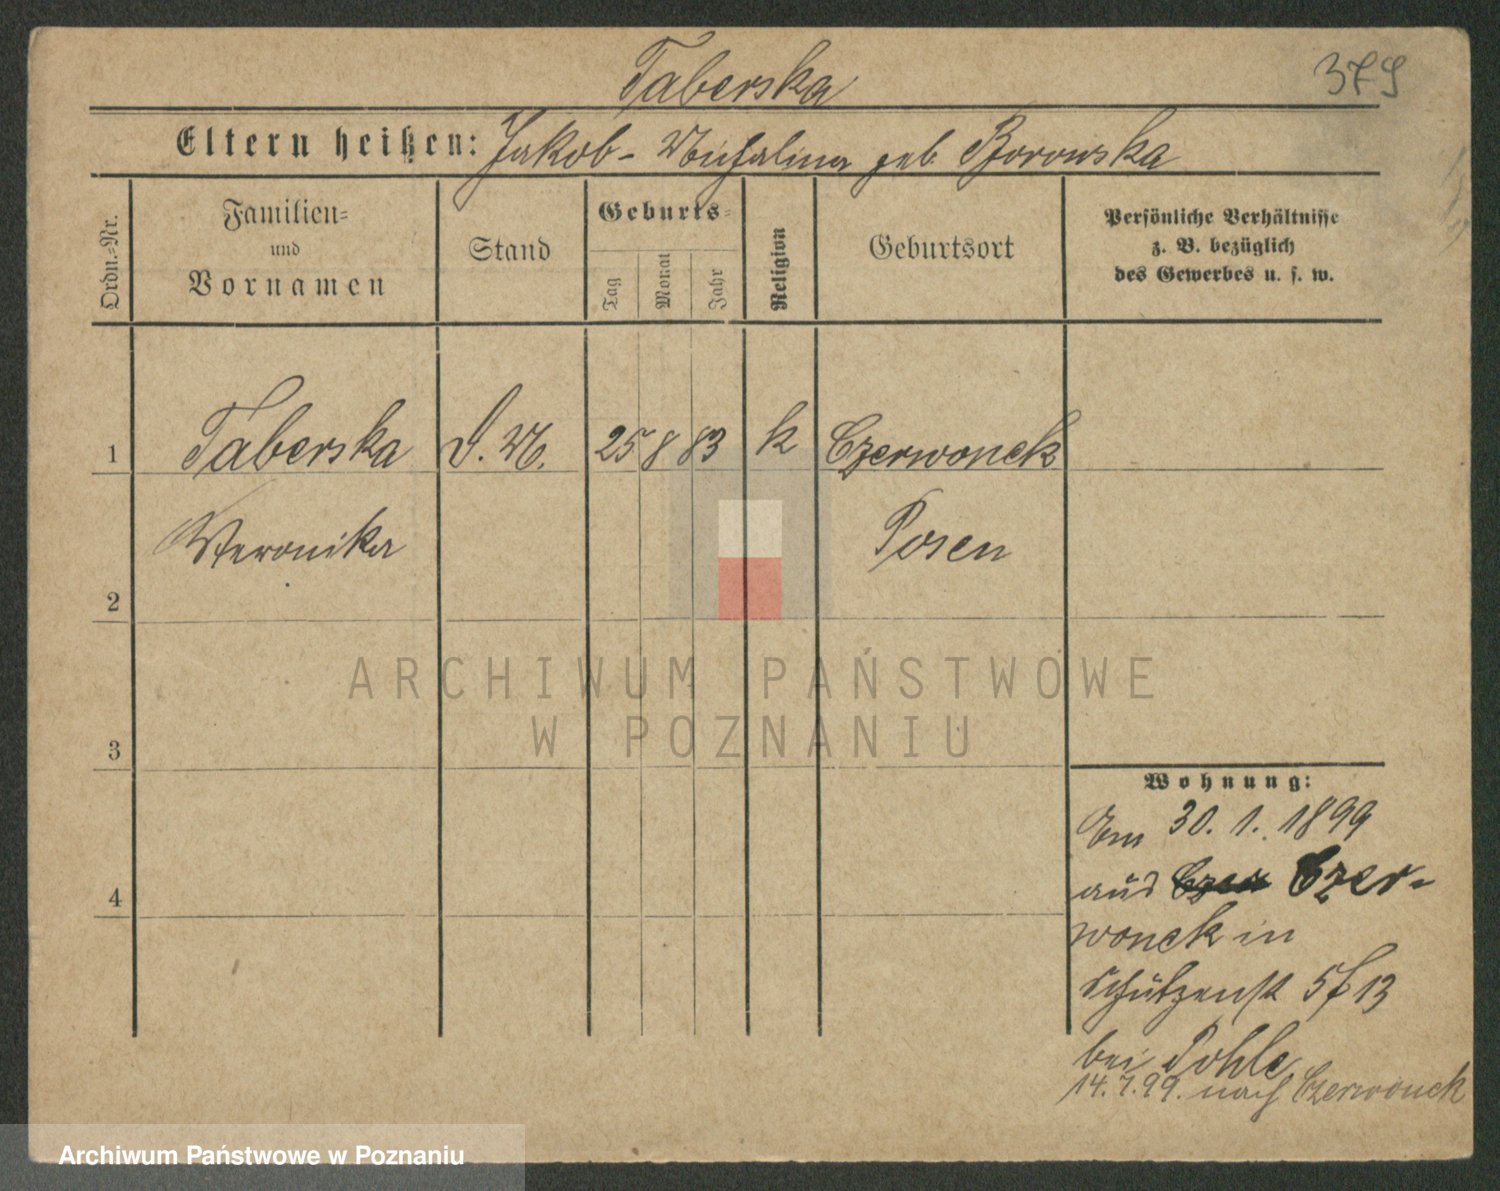 Taberska
379
Eltern heißen: Jakob - Michalina geb Borowska
Ordn.-Nr.
Familien-
und
Vornamen
Stand
Geburts-
Tag
Monat
Jahr
Religion
Geburtsort
Persönliche Verhältnisse
z. B. bezüglich
des Gewerbes u. s. w.
1 Taberska D. M. 25 8 83 k Czerwonek
Veronika Posen
2
3
4
Wohnung:
Am 30. 1. 1899
aus Czer-
wonek in
Schützenst 5f 13
bei Pohle
14.7.99. nach Czerwonek
ARCHIWUM PAŃSTWOWE
W POZNANIU
Archiwum Państwowe w Poznaniu